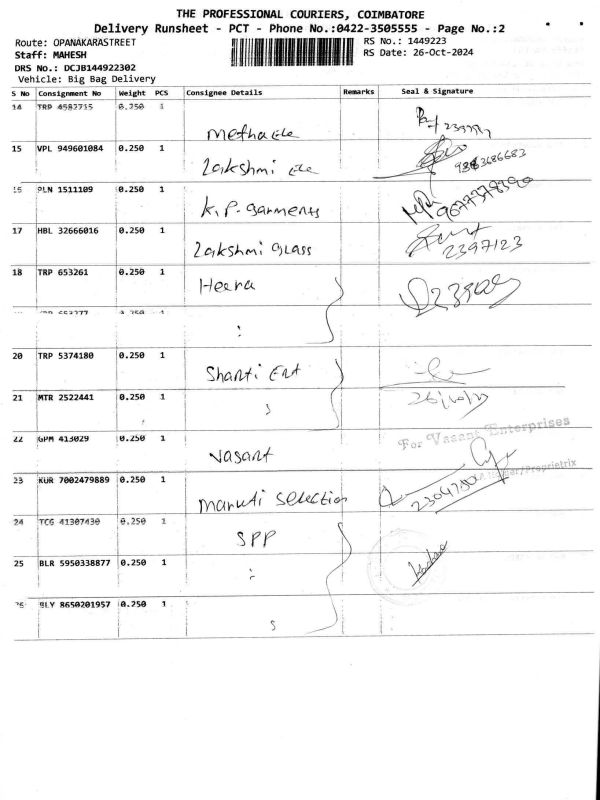 THE PROFESSIONAL COURIERS, COIMBATORE
Delivery Runsheet - PCT - Phone No.:0422-3505555 - Page No.:2
Route: OPANAKARASTREET
RS No.: 1449223
Staff: MAHESH
RS Date: 26-Oct-2024
DRS No.: DCJB144922302
Vehicle: Big Bag Delivery
S No Consignment No Weight PCS Consignee Details Remarks Seal & Signature
14 TRP 4582715 0.250 1
15 VPL 949601084 0.250 1 Lakshmi
16 PLN 1511109 0.250 1 K.P. Garments
17 HBL 32666016 0.250 1 Lakshmi Glass 2397123
18 TRP 653261 0.250 1 Heera
20 TRP 5374180 0.250 1 Shanti Ent
21 MTR 2522441 0.250 1
22 GPM 413029 0.250 1 Vasant
For Vasant Enterprises
23 KUR 7002479889 0.250 1 Maruti Selection
24 TCG 41307430 0.250 1 SPP
25 BLR 5950338877 0.250 1
26 BLY 8650201957 0.250 1